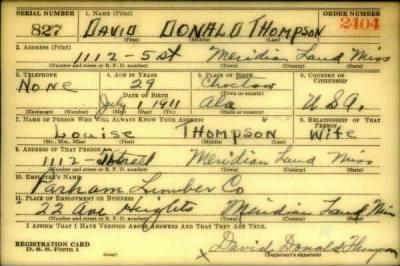 SERIAL NUMBER 1. NAME (Print) ORDER NUMBER
827 DAVID DONALD THOMPSON 2404
(First) (Middle) (Last)
2. ADDRESS (Print)
1112-5 St Meridian Laud Miss
(Number and street or R. F. D. number) (Town) (County) (State)
3. TELEPHONE 4. AGE IN YEARS 5. PLACE OF BIRTH 6. COUNTRY OF CITIZENSHIP
None 29 Choctaw
DATE OF BIRTH (Town or county)
July 1 1911 Ala USA.
(Exchange) (Number) (Mo.) (Day) (Yr.) (State or country)
7. NAME OF PERSON WHO WILL ALWAYS KNOW YOUR ADDRESS 8. RELATIONSHIP OF THAT PERSON
Louise THOMPSON Wife
(Mr., Mrs., Miss) (First) (Middle) (Last)
9. ADDRESS OF THAT PERSON
1112- Street Meridian Laud Miss
(Number and street or R. F. D. number) (Town) (County) (State)
10. EMPLOYER'S NAME
Parham Lumber Co
11. PLACE OF EMPLOYMENT OR BUSINESS
22 Ave Heights Meridian Laud Miss
(Number and street or R. F. D. number) (Town) (County) (State)
I AFFIRM THAT I HAVE VERIFIED ABOVE ANSWERS AND THAT THEY ARE TRUE.
REGISTRATION CARD
D. S. S. Form 1
David Donald Thompson
(Registrant's signature)